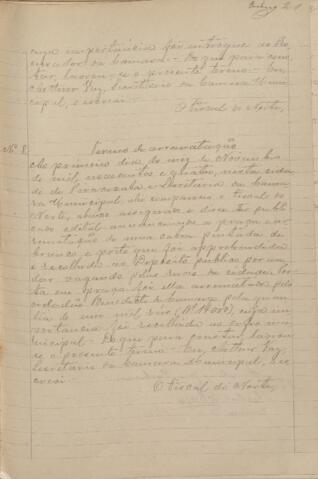 cuja importancia foi entregue ao Pro-
curador da Camara. - Do que para cons-
tar, lavrou-se o presente termo. - Eu,
Arthur Vaz, Secretario da Camara Muni-
cipal, o escrevi. -
O Fiscal do Norte,
Nº 8.
Termo de arrematação
Ao primeiro dia do mez de Novembro
de mil novecentos e quatro, nesta cida-
de de Piracicaba e Secretaria da Cama-
ra Municipal, ahi compareceu o Fiscal do
Norte, abaixo assignado e disse ter publi-
cado edital annunciando a praça e arre-
matação de uma cabra pintada de
branco e preto que foi apprehendida
e recolhida ao Deposito publico por an-
dar vagando pelas ruas da cidade. Pos-
ta em praça foi ella arrematada pelo
cidadão Benedicto de Camargo pela quan-
tia de um mil réis (Rs 1$000), cuja im-
portancia foi recolhida ao cofre mu-
nicipal. - Do que para constar, lavrou-
se o presente termo. - Eu, Arthur Vaz,
Secretario da Camara Municipal, o es-
crevi. -
O Fiscal do Norte,